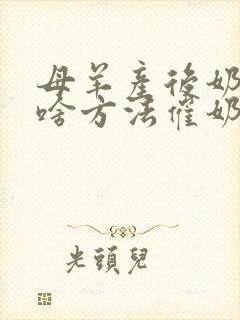 母羊產後奶
啥方法催奶
光頭兒